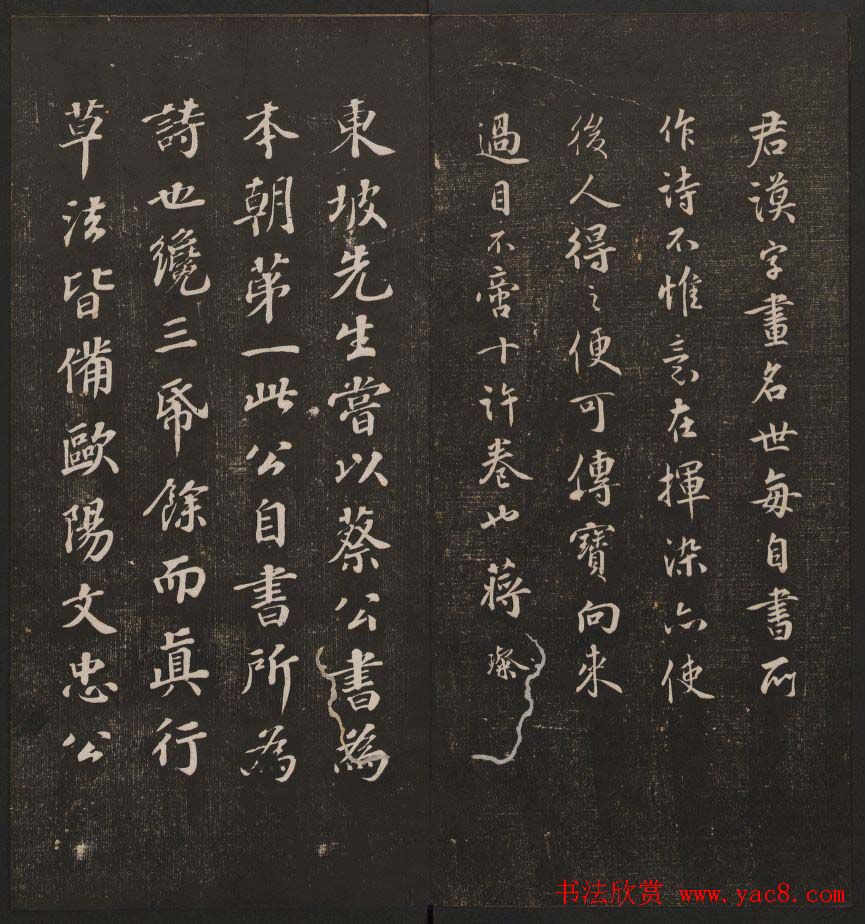 君謨字畫名世每自書所
作诗不惟意在揮染亦使
後人得之便可傳寶向來
過目不啻十许卷也蒋璨
東坡先生嘗以蔡公書為
本朝苐一此公自書所為
詩也纔三帋餘而真行
草法皆備歐陽文忠公
书法欣赏 www.yac8.com